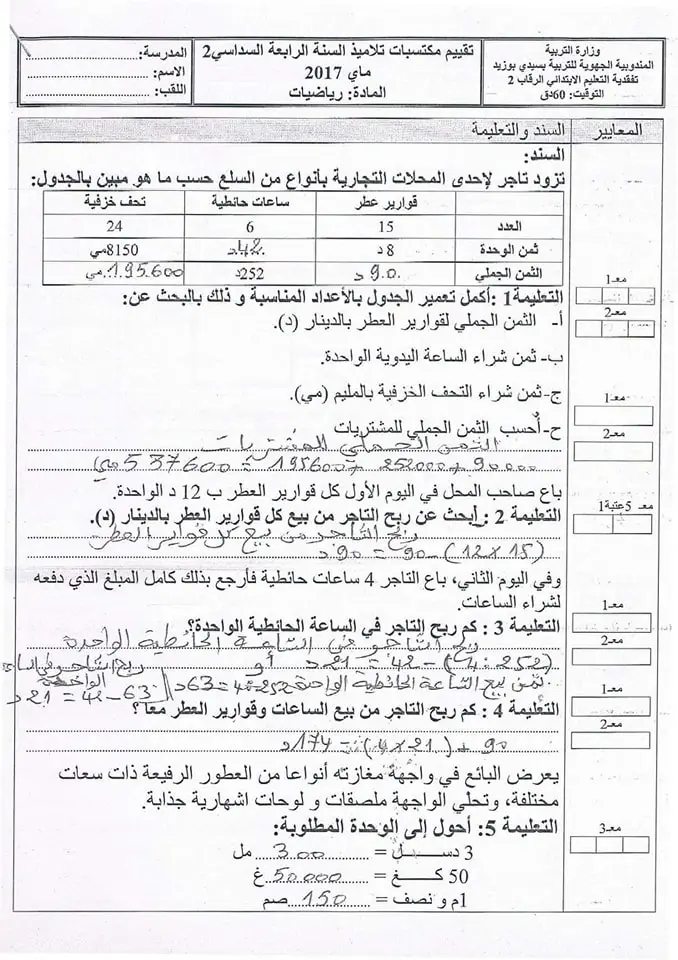 وزارة التربية
المندوبية الجهوية للتربية بسيدي بوزيد
تفقدية التعليم الابتدائي الرقاب 2
التوقيت: 60دق
تقييم مكتسبات تلاميذ السنة الرابعة السداسي2
ماي 2017
المادة: رياضيات
المدرسة:
الاسم:
اللقب:
المعايير
السند والتعليمة
السند:
تزود تاجر لإحدى المحلات التجارية بأنواع من السلع حسب ما هو مبين بالجدول:
قوارير عطر ساعات حائطية تحف خزفية
العدد 15 6 24
ثمن الوحدة 8د 42د 8150مي
الثمن الجملي 90 د 252د 195600 مي
التعليمة1 :أكمل تعمير الجدول بالأعداد المناسبة و ذلك بالبحث عن:
مع1
أ- الثمن الجملي لقوارير العطر بالدينار (د).
مع2
ب- ثمن شراء الساعة اليدوية الواحدة.
ج-ثمن شراء التحف الخزفية بالمليم (مي).
مع1
ح-أحسب الثمن الجملي للمشتريات
مع2
الثمن الجملي للمشتريات
90000 + 252000 + 195600 = 537600 مي
باع صاحب المحل في اليوم الأول كل قوارير العطر ب 12 د الواحدة.
مع 5عتبة1
التعليمة 2 : إبحث عن ربح التاجر من بيع كل قوارير العطر بالدينار (د).
ربح التاجر من بيع كل قوارير العطر
(12 x 15) - 90 = 90 د
وفي اليوم الثاني، باع التاجر 4 ساعات حائطية فأرجع بذلك كامل المبلغ الذي دفعه
لشراء الساعات.
مع1
التعليمة 3 : كم ربح التاجر في الساعة الحائطية الواحدة؟
مع2
ربح التاجر في الساعة الحائطية الواحدة
(252 : 4) - 42 = 21 د أو
ثمن بيع الساعة الحائطية الواحدة 252 : 4 = 63 د
ربح التاجر في الساعة الواحدة
63 - 42 = 21 د
مع1
التعليمة 4 : كم ربح التاجر من بيع الساعات وقوارير العطر معا؟
مع2
90 + (21 x 4) = 174 د
يعرض البائع في واجهة مغازته أنواعا من العطور الرفيعة ذات سعات
مختلفة، وتحلي الواجهة ملصقات و لوحات اشهارية جذابة.
التعليمة 5: أحول إلى الوحدة المطلوبة:
مع3
3 دســـل = 300 مل
50 كــــغ = 50000 غ
1م و نصف = 150 صم